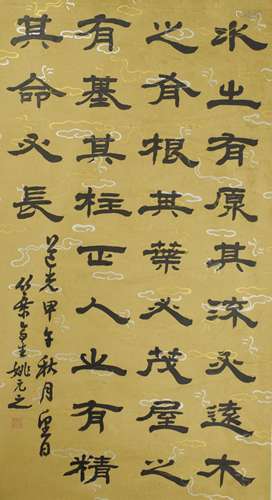 水之有原其流必遠木
之有根其葉必茂屋之
有基其柱正人之有精
其命必長
道光甲午秋月望日
竹葉亭生姚元之